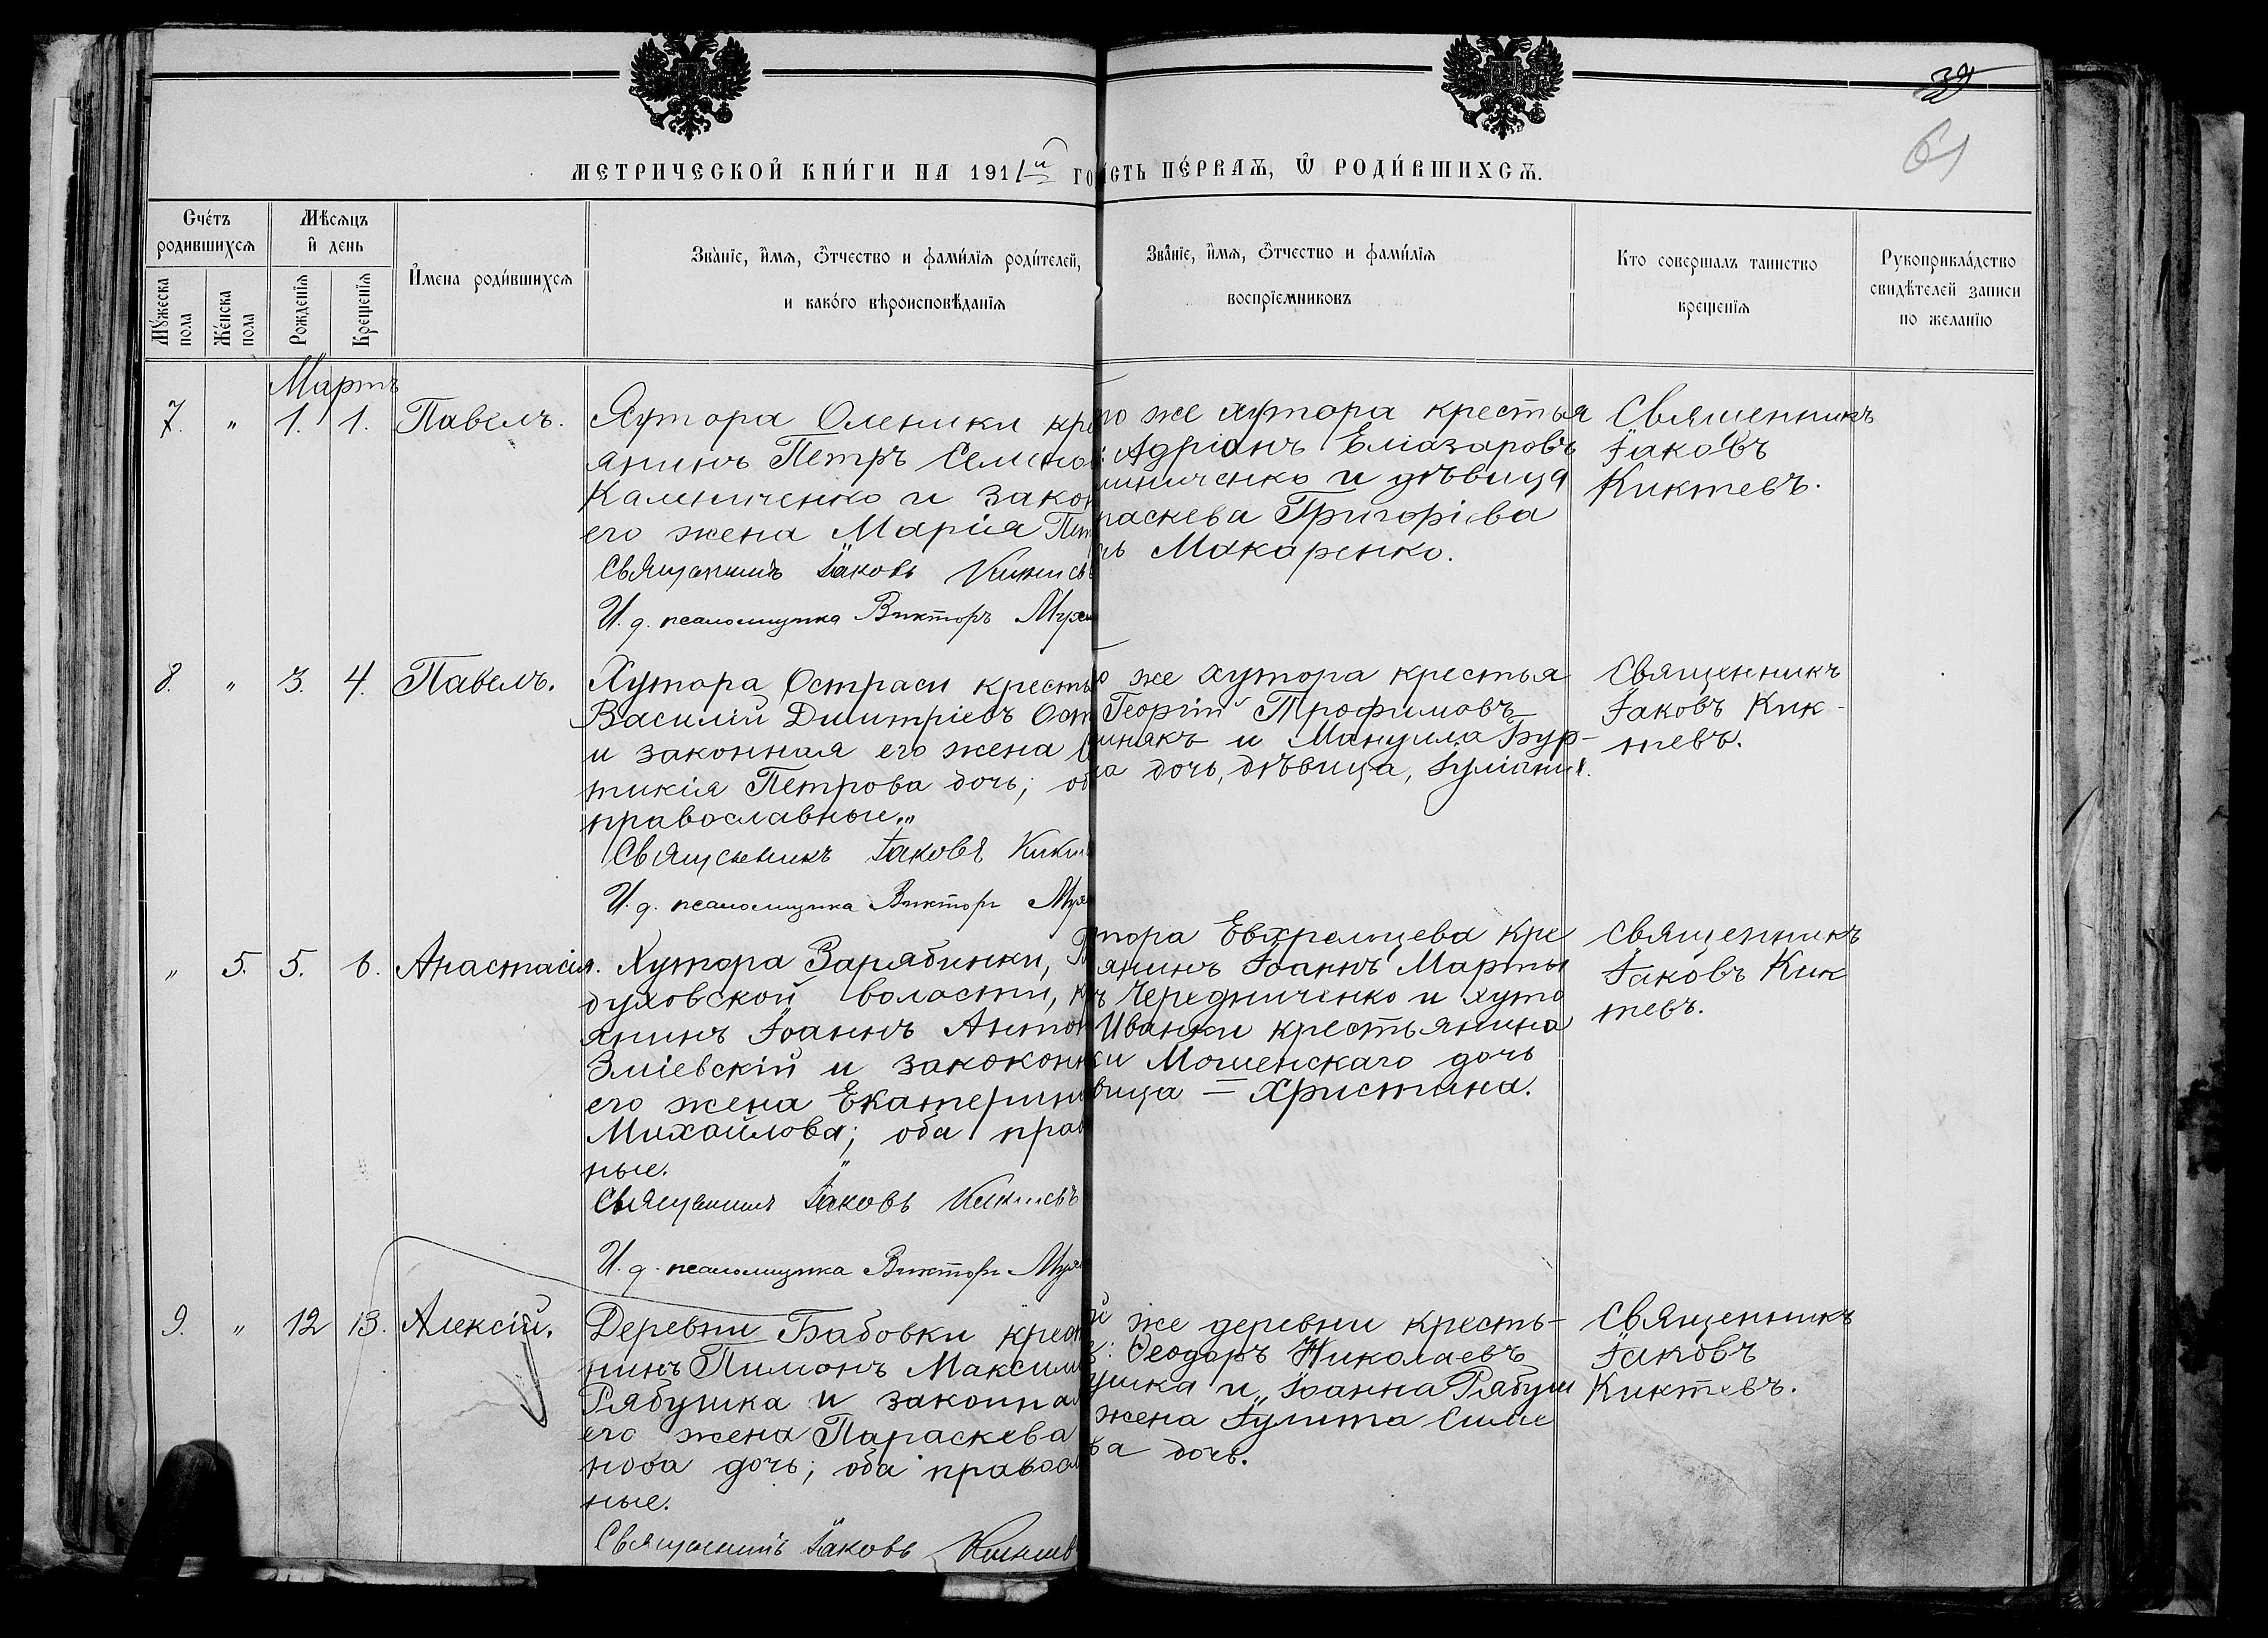 39
61
МЕТРИЧЕСКОЙ КНИГИ НА 1911й ГО
СТЬ ПЕРВАЯ, Ѡ РОДИВШИХСЯ.
Счетъ родившихся
Мужеска пола
Женска пола
Мѣсяцъ и день
Рожденія
Крещенія
Имена родившихся
Званіе, имя, отчество и фамилія родителей,
и какого вѣроисповѣданія
Званіе, имя, отчество и фамилія
воспріемниковъ
Кто совершалъ таинство
крещенія
Рукоприкладство
свидѣтелей записи
по желанію
Мартъ
7. " 1. 1. Павелъ.
Хутора Оленики кре
янинъ Петръ Семено
Калениченко и закон
его жена Марія Пет
Священникъ Іаковъ Киктевъ
И. д. псаломщика Викторъ
го же хутора крестья
Адріанъ Еліазаровъ
линиченко и дѣвица
раскева Григоріева
чь Макаренко.
Священникъ
Іаковъ
Киктевъ.
8. " 3. 4. Павелъ.
Хутора Остраси кресть
Василій Димитріевъ Ост
и законная его жена
тикія Петрова дочь; об
православные.
Священникъ Іаковъ Кикт
И. д. псаломщика Викторъ
о же хутора крестья
Георгій Трофимовъ
инякъ и Мануила Бур-
на дочь, дѣвица, Іуліанія.
Священникъ
Іаковъ Кик-
тевъ.
" 5. 5. 6. Анастасія.
Хутора Зарябинки,
духовской волости, к
янинъ Іоаннъ Антон
Зміевскій и закоконн
его жена Екатерин
Михайлова; оба прав
ные.
Священникъ Іаковъ Киктевъ
И. д. псаломщика Викторъ
тора Евхремцева кре
янинъ Іоаннъ Марты
ъ Чередниченко и хуто
Иванки крестьянина
ки Мошенскаго дочь
вица = Христина.
Священникъ
Іаковъ Кик
тевъ.
9. " 12 13. Алексій.
Деревни Бабовки крест
нинъ Пимонъ Максим
Рябушка и законная
его жена Параскева
нова дочь; оба правосл
ные.
Священникъ Іаковъ Киктев
й же деревни кресть-
Ѳеодоръ Николаевъ
ушка и Іоанна Рябуш
жена Іулита Силе
ва дочь.
Священникъ
Іаковъ
Киктевъ.